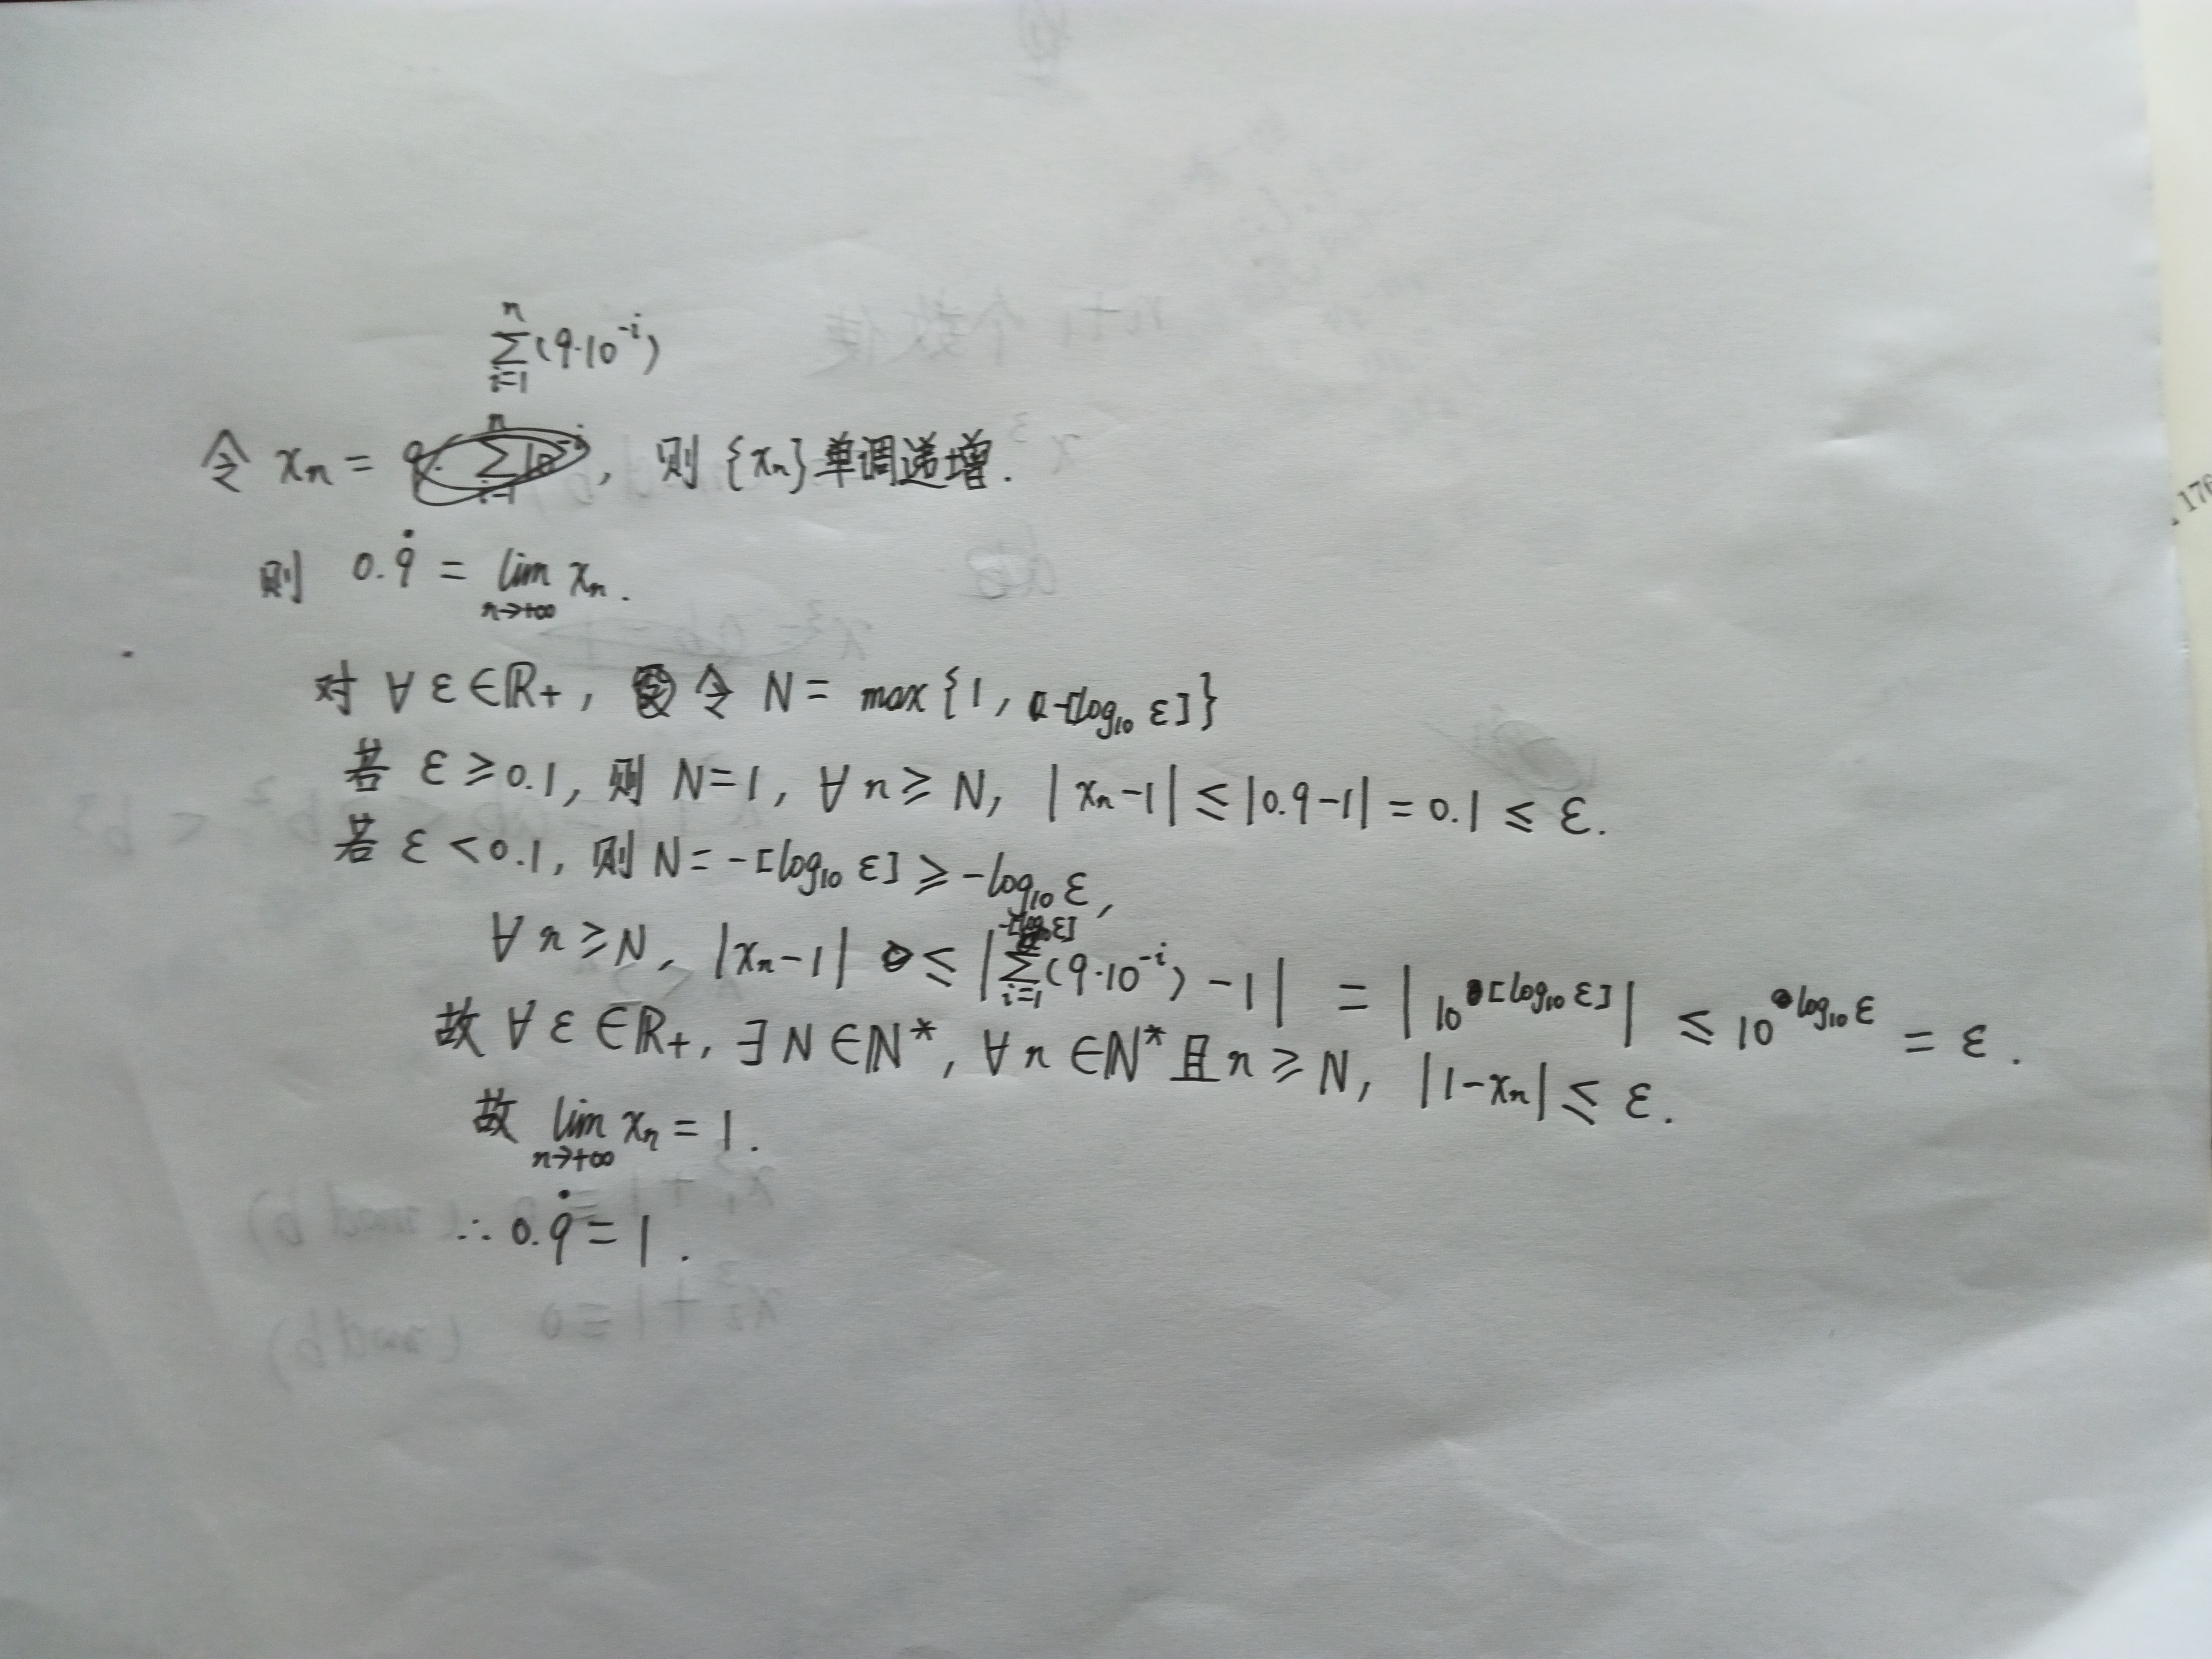 令 xₙ = ∑ᵢ₌₁ⁿ(9·10⁻ⁱ), 则 {xₙ} 单调递增.
则 0.9̇ = lim_{n→+∞} xₙ.
对 ∀ ε ∈ ℝ₊, 令 N = max{1, -[log₁₀ ε]}
若 ε ≥ 0.1, 则 N=1, ∀ n ≥ N, |xₙ-1| ≤ |0.9-1| = 0.1 ≤ ε.
若 ε < 0.1, 则 N = -[log₁₀ ε] ≥ -log₁₀ ε,
∀ n ≥ N, |xₙ-1| ≤ |∑_{i=1}^{-[log₁₀ ε]}(9·10⁻ⁱ) - 1| = |10^{[log₁₀ ε]}| ≤ 10^{log₁₀ ε} = ε.
故 ∀ ε ∈ ℝ₊, ∃ N ∈ ℕ*, ∀ n ∈ ℕ* 且 n ≥ N, |1-xₙ| ≤ ε.
故 lim_{n→+∞} xₙ = 1.
∴ 0.9̇ = 1.
176